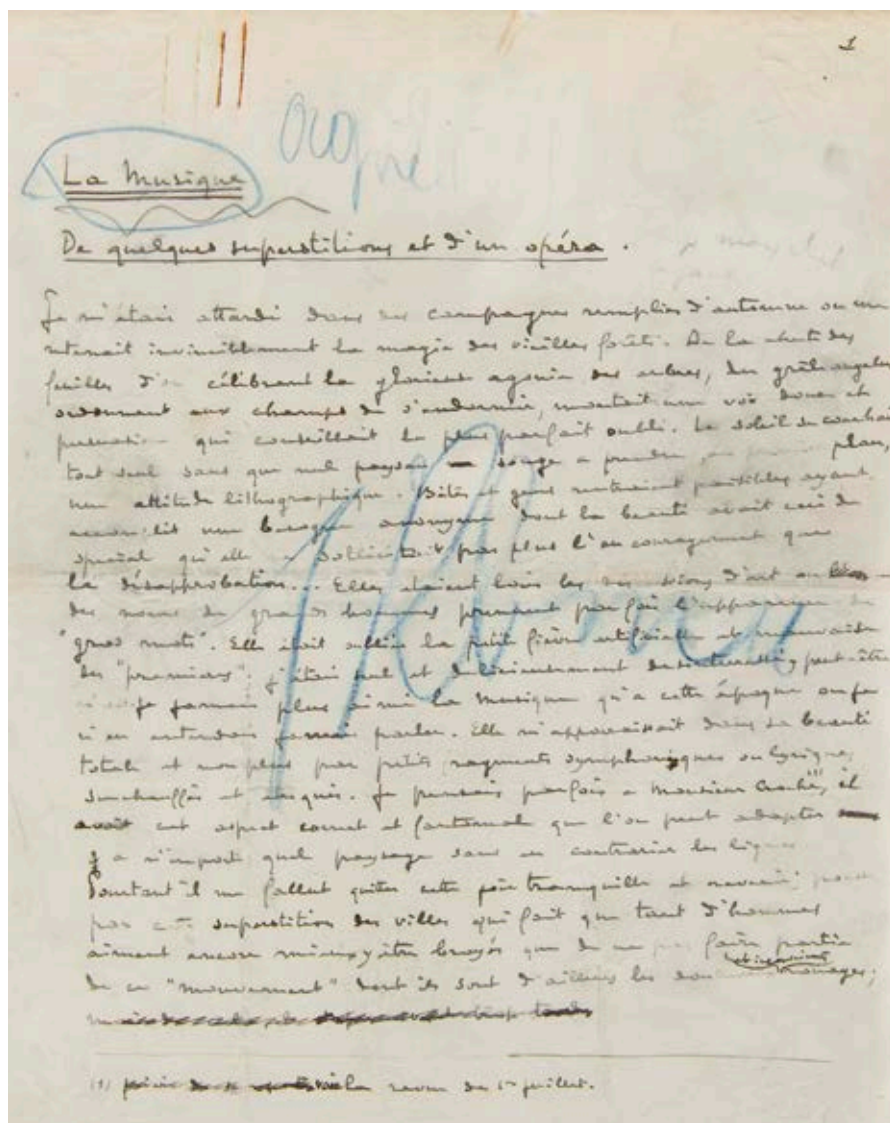 1
La Musique
De quelques superstitions et d'un opéra.
Je m'étais attardé dans des campagnes remplies d'automne où me
retenait invinciblement la magie des vieilles forêts. De la chute des
feuilles d'or célébrant la glorieuse agonie des arbres, du grêle angelus
ordonnant aux champs de s'endormir, montait une voix douce et
persuasive qui conseillait le plus parfait oubli. Le soleil se couchait
tout seul sans que nul paysan songe à prendre, au premier plan,
une attitude lithographique. Bêtes et gens rentraient paisibles ayant
accompli une besogne anonyme dont la beauté avait ceci de
spécial qu'elle ne sollicitait pas plus l'encouragement que
la désapprobation... Elles étaient loin les discussions d'art où
des noms de grands hommes prennent parfois l'apparence de
"gros mots". Elle était oubliée la petite fièvre artificielle et mauvaise
des "premières". j'étais seul et délicieusement désintéressé, peut-être
je jamais plus aimé la Musique qu'à cette époque où je
n'en entendais jamais parler. Elle m'apparaissait dans sa beauté
totale et non plus par petits fragments symphoniques ou lyriques
surchauffés et étriqués. Je pensais parfois à Monsieur Croche (1), il
avait cet aspect correct et fantomal que l'on peut adapter
à n'importe quel paysage sans en contrarier les lignes
Pourtant il me fallut quitter cette joie tranquille et revenir, poussé
par cette superstition des villes qui fait que tant d'hommes
aiment encore mieux y être broyés que de ne pas faire partie
de ce "mouvement" dont ils sont d'ailleurs les rouages;
(1) la revue du 1er juillet.